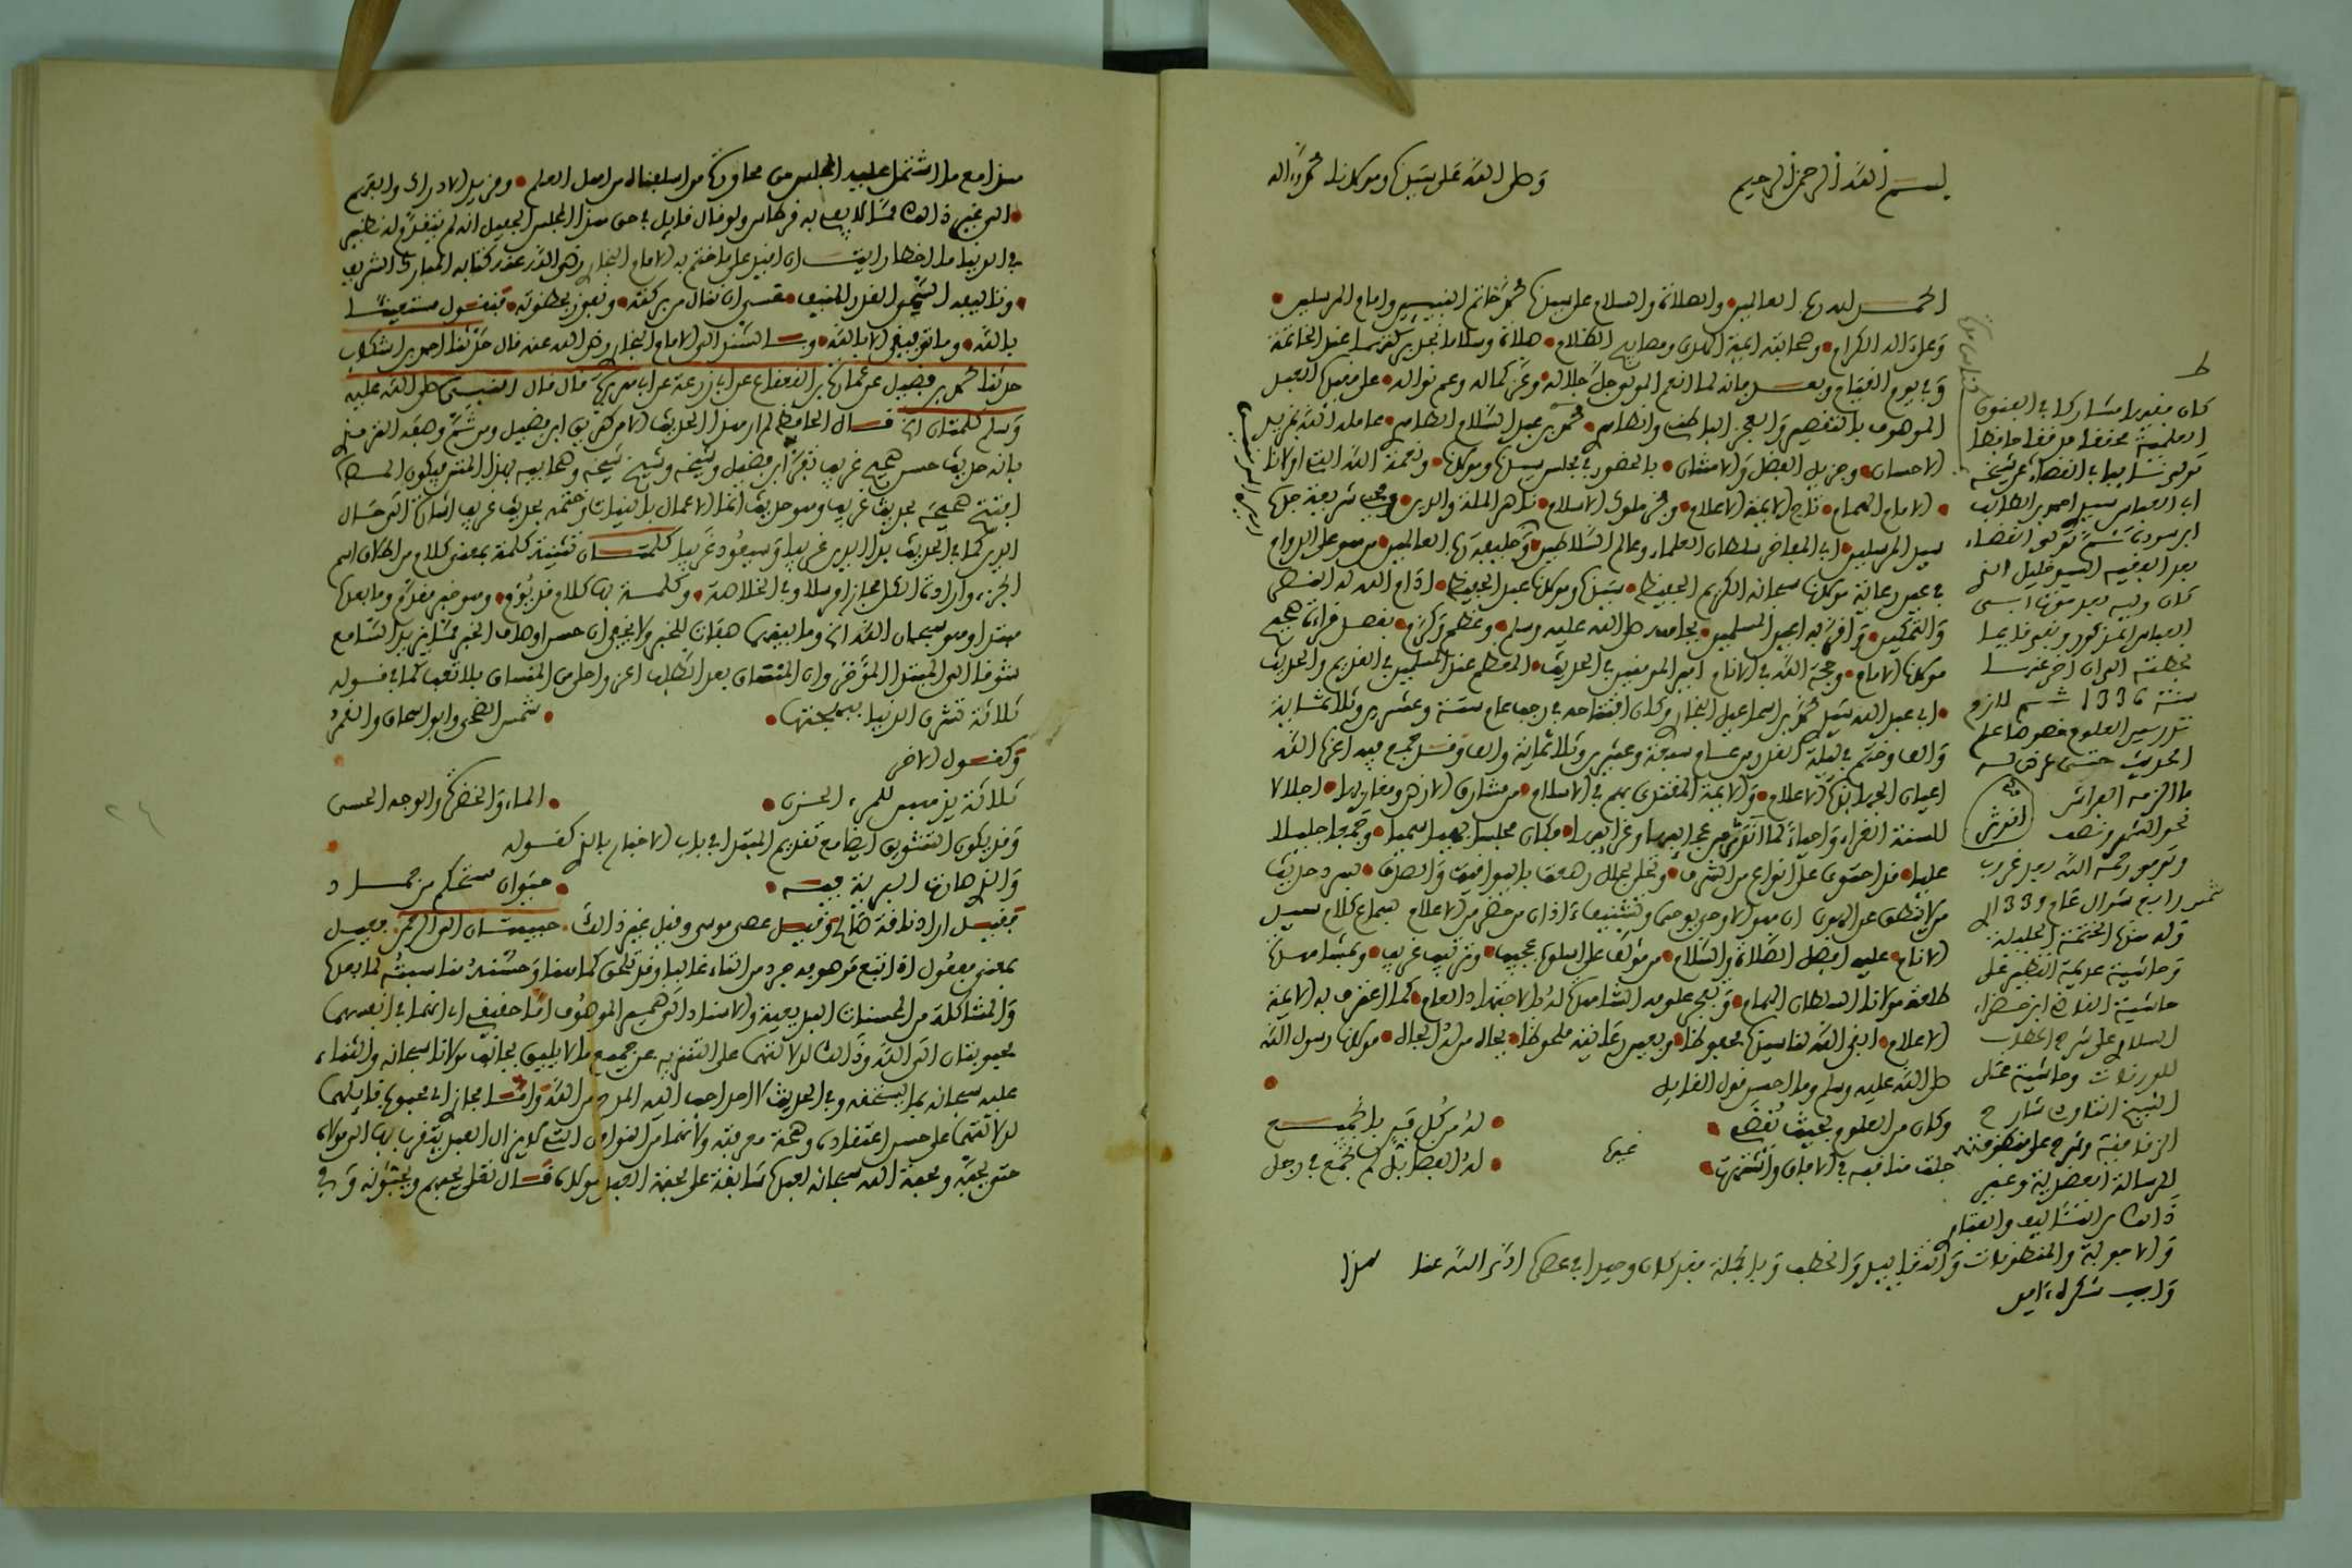 بسم الله الرحمن الرحيم
وصلى الله على سيدنا ومولانا محمد وآله
الحمد لله رب العالمين والصلاة والسلام على سيدنا محمد خاتم النبيين وإمام المرسلين
وعلى آله الكرام وصحابته أيمة الهدى ومصابيح الظلام صلاة وسلاما نجد بركتهما عند الخاتمة
وفي يوم القيام وبعد فإنه لما أنعم المولى جل جلاله وعز كماله وعم نواله على عبده العبد
الموصوف بالتقصير والعجز الباطني والظاهر محمد بن عبد السلام الطاهر عامله الله بمزيد
الإحسان وجزيل الفضل والامتنان بالحضور في مجلس سيدنا ومولانا ونعمة الله التي أولانا
الإمام الهمام تاج الأيمة الأعلام وفخر ملوك الإسلام ناصر الملة والدين ومحيي شريعة جده
سيد المرسلين أبي المفاخر سلطان العلماء وعالم السلاطين وخليفة رب العالمين من هو على الدوام
في عين رعاية مولانا سبحانه الكريم الحفيظ سيدنا ومولانا عبد الحفيظ أدام الله له النصر
والتمكين وأقر به أعين المسلمين بجاهه صلى الله عليه وسلم وعظم وكرم بفضل قراءة صحيح
مولانا الإمام وحجة الله في الأنام أمير المومنين في الحديث المعظم عند المسلمين في القديم والحديث
أبي عبد الله سيدي محمد بن إسماعيل البخاري وكان افتتاحه في رجب عام ستة وعشرين وثلاثمائة
وألف وختم في ليلة القدر من عام سبعة وعشرين وثلاثمائة وألف وقد جمع فيه أعزه الله
أعيان الجهابذة الأعلام والأيمة المقتدى بهم في الإسلام من مشارق الأرض ومغاربها إجلالا
للسنة الغراء وإحياء لما اندرس من عجائبها وغرائبها فكان مجلسا بهيا سميا وجمعا جليلا
عليا قد احتوى على أنواع من الشرف وتحلى بحلل رصعت باليواقيت والصدف بسرد حديث
من لا ينطق عن الهوى إن هو إلا وحي يوحى وتشنيف آذان من حضر من الأعلام بسماع كلام سيد
الأنام عليه أفضل الصلاة والسلام من مؤلف على أسلوب عجيب وترتيب غريب وبمشاهدة
طلعة مولانا السلطان الهمام وبحر علومه الشاهدة له بالاجتهاد العام كما اعترف به الأيمة
الأعلام أبقى الله لنا سيدنا محفوظا وبعين رعايته ملحوظا بجاه من له الجاه مولانا رسول الله
صلى الله عليه وسلم وما أحسن قول القايل
وكان من العلوم بحيث يقضى
له من كل فن بالجميع
غيره
جلت مناقبه في الآفاق واشتهرت
له الفضائل لم تجمع في رجل
هذا
كان فقيها مشاركا في الفنون
العلمية محققا مدققا حافظا
تولى نيابة القضاء عن شيخه
أبي العباس سيدي أحمد بن الطالب
ابن سودة ثم تولى القضاء
بعد الفقيه السيد خليل الذي
كان وليه بعد موت أبي
العباس المذكور وبقي قايما
بخطته إلى أن أخر عنها
سنة 1336 ثم لازم
تدريس العلوم خصوصا علم
الحديث حتى عرض له
ما ألزمه الفراش
نحو الشهر ونصف
وتوفي رحمه الله بعد غروب
شمس رابع شوال عام 1339
وله منها الختمة الجليلة
وحاشية عديمة النظير على
حاشية القاضي ابن خضراء
السلاوي على شرح الحطاب
للورقات وحاشية على
الشيخ التاودي شارح
الزقاقية وشرح على منظومته
للرسالة العضدية وغير
ذلك من التآليف والفتاوي
والأجوبة والمنظومات والتقاييد والخطب وبالجملة فقد كان وحيدا في عصره
هذا مع ما اشتمل عليه المجلس من محاورة مولانا لمن له من أهل العلم ومزيد الإدراك والفهم
إلى غير ذلك مما لا يفي به قرطاس ولو قال قايل في حق هذا المجلس الحفيل أنه لم يتقدم له نظير
في الدنيا ما أخطأ رأيت أن أفيد على ما ختم به الإمام البخاري رضي الله عنه كتابه المبارك الشريف
وتأليفه السني القدر المنيف عسى أن ننال من بركته ونفوز بحظوته فنقول مستعينا
بالله وما توفيقي إلا بالله وبالسند إلى الإمام البخاري رضي الله عنه قال حدثنا أحمد بن إشكاب
حدثنا محمد بن فضيل عن عمارة بن القعقاع عن أبي زرعة عن أبي هريرة قال قال النبي صلى الله عليه
وسلم كلمتان الخ قال الحافظ لم أر هذا الحديث إلا من طريق ابن فضيل ومن ثم وصفه الترمذي
بأنه حديث حسن صحيح غريب تفرد ابن فضيل وشيخه وشيخ شيخه وصحابيه بهذا المتن فيكون المصنف
افتتح صحيحه بحديث غريب وهو حديث إنما الأعمال بالنيات وختمه بحديث غريب إشارة إلى حال
الدين كما في الحديث بدأ الدين غريبا وسيعود غريبا كلمتان تثنية كلمة بمعنى كلام من إطلاق اسم
الجزء وإرادة الكل مجازا مرسلا وفي الخلاصة وكلمة بها كلام قد يؤم وهو خبر مقدم وما بعدها
مبتدأ وهو سبحان الله الخ وما بينهما صفات للخبر ولا يخفى أن حسن أوصاف الخبر مما يزيد السامع
شوقا إلى المبتدإ المؤخر وأن المنساق بعد الطلب أعز وأحلى من المنساق بلا تعب كما في قوله
ثلاثة تشرق الدنيا ببهجتها
شمس الضحى وأبو إسحاق والقمر
وكقول الآخر
ثلاثة يذهبن للمرء الحزن
الماء والخضرة والوجه الحسن
وقد يكون التشويق أيضا مع تقديم المبتدإ في باب الإخبار بالذي كقوله
والذي حارت البرية فيه
حيوان مستحكم من جماد
فقيل أراد ناقة صالح وقيل عصى موسى وقيل غير ذلك حبيبتان إلى الرحمن فعيل
بمعنى مفعول إذا اتبع موصوفه جرد من التاء غالبا وقد تلحق كما هنا وحسنه مناسبته لما بعده
والمشاكلة من الحسنات البديعية والإسناد إلى ضمير الموصوف إما حقيقي أي أنهما في أنفسهما
محبوبتان إلى الله وذلك لدلالتهما على التنزيه عن جميع ما لا يليق بجناب مولانا سبحانه والثناء
عليه سبحانه بما يستحقه وفي الحديث لا أحد أحب إليه المدح من الله وإما مجاز أي محبوب قايلهما
لدلالتهما على حسن اعتقاده وصحة معرفته ولأنهما من النوافل التي لا يزال العبد يتقرب بها إلى مولاه
حتى يحبه ومحبة الله سبحانه لعبده سابقة على محبة العبد مولاه قال تعالى يحبهم ويحبونه وفي